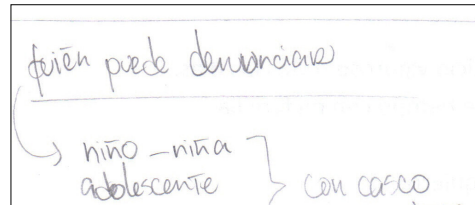 quién puede denunciar
niño - niña
adolescente
con casco